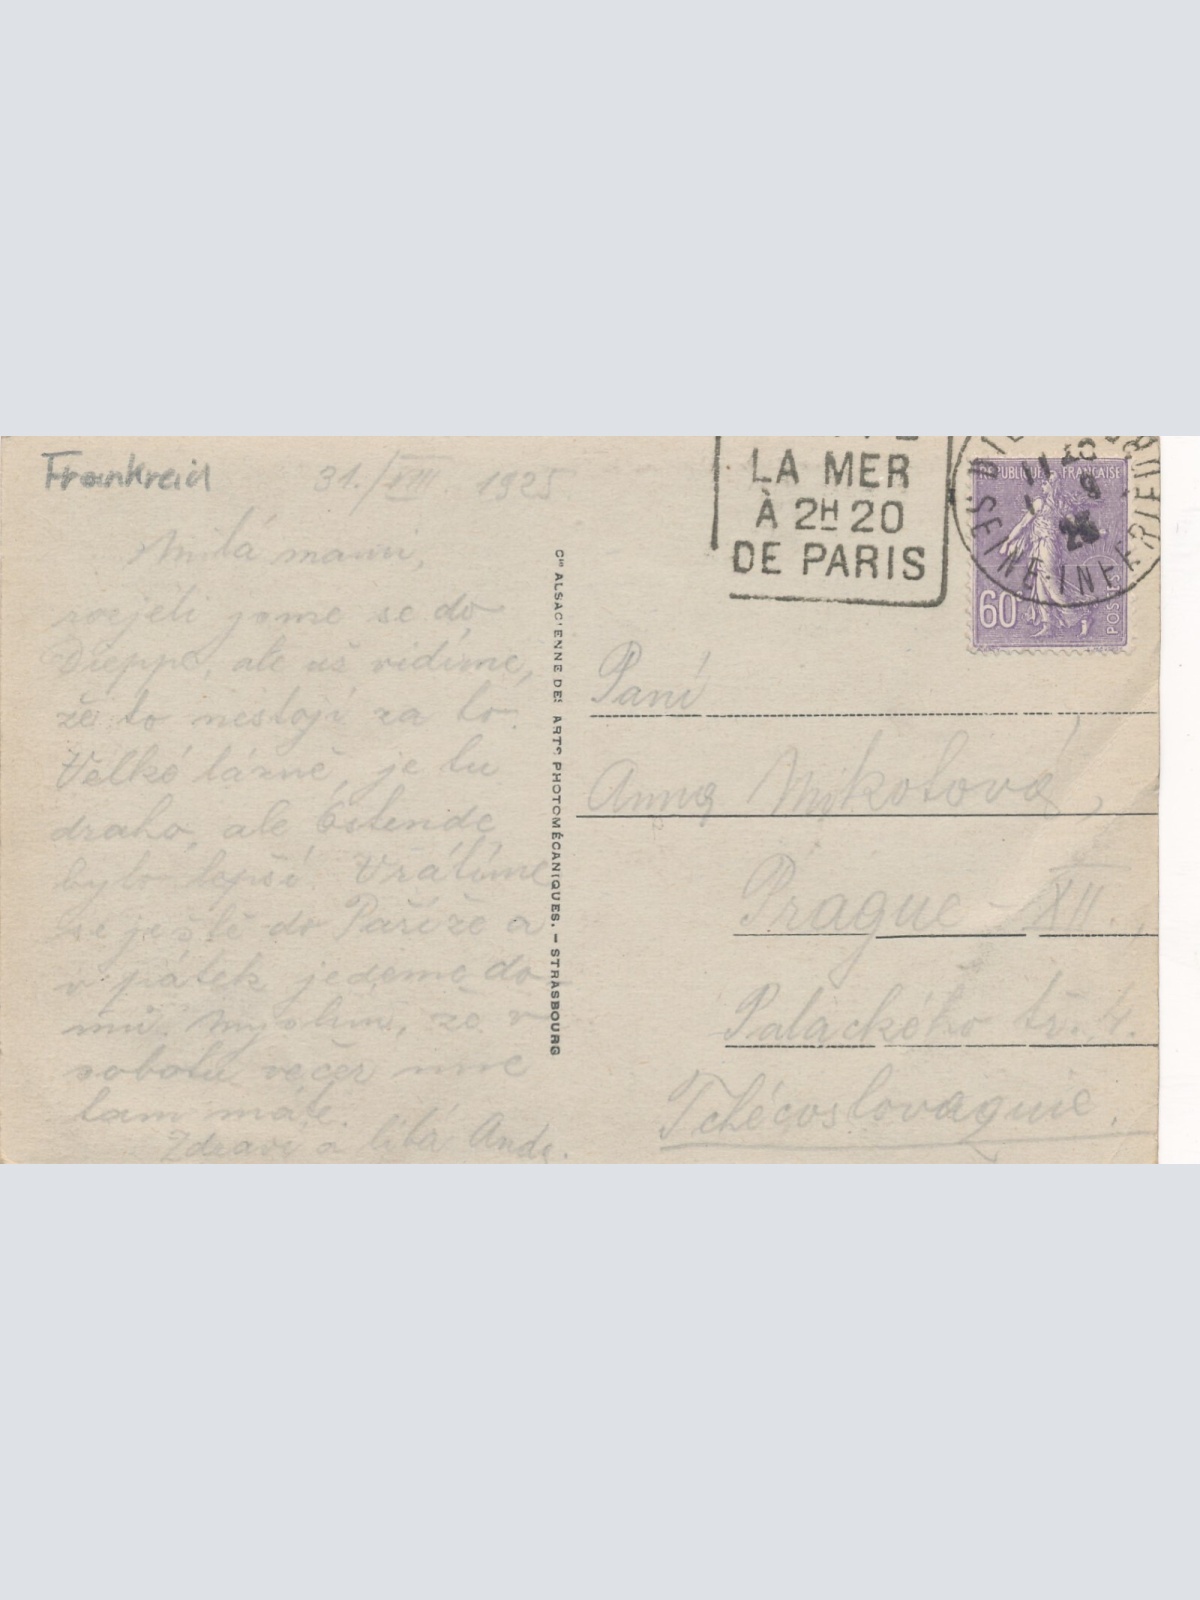 Frankreich
31./VIII. 1925
Milá mami,
rozjeli jsme se do
Dieppe, ale už vidíme,
že to nestojí za to.
Velké lázně, je tu
draho, ale Ostende
bylo lepší. Vrátíme
se ještě do Paříže a
v pátek jedeme do
mů. Myslím, že v
sobotu večer mne
tam máte.
Zdraví a líbá Anda.
CIE ALSACIENNE DES ARTS PHOTOMÉCANIQUES. – STRASBOURG
LA MER
À 2H 20
DE PARIS
SEINE-INFERIEURE
RÉPUBLIQUE FRANÇAISE
60
POSTES
Paní
Anna Mikotová,
Prague – XII.,
Palackého tř. 4.
Tchécoslovaquie.